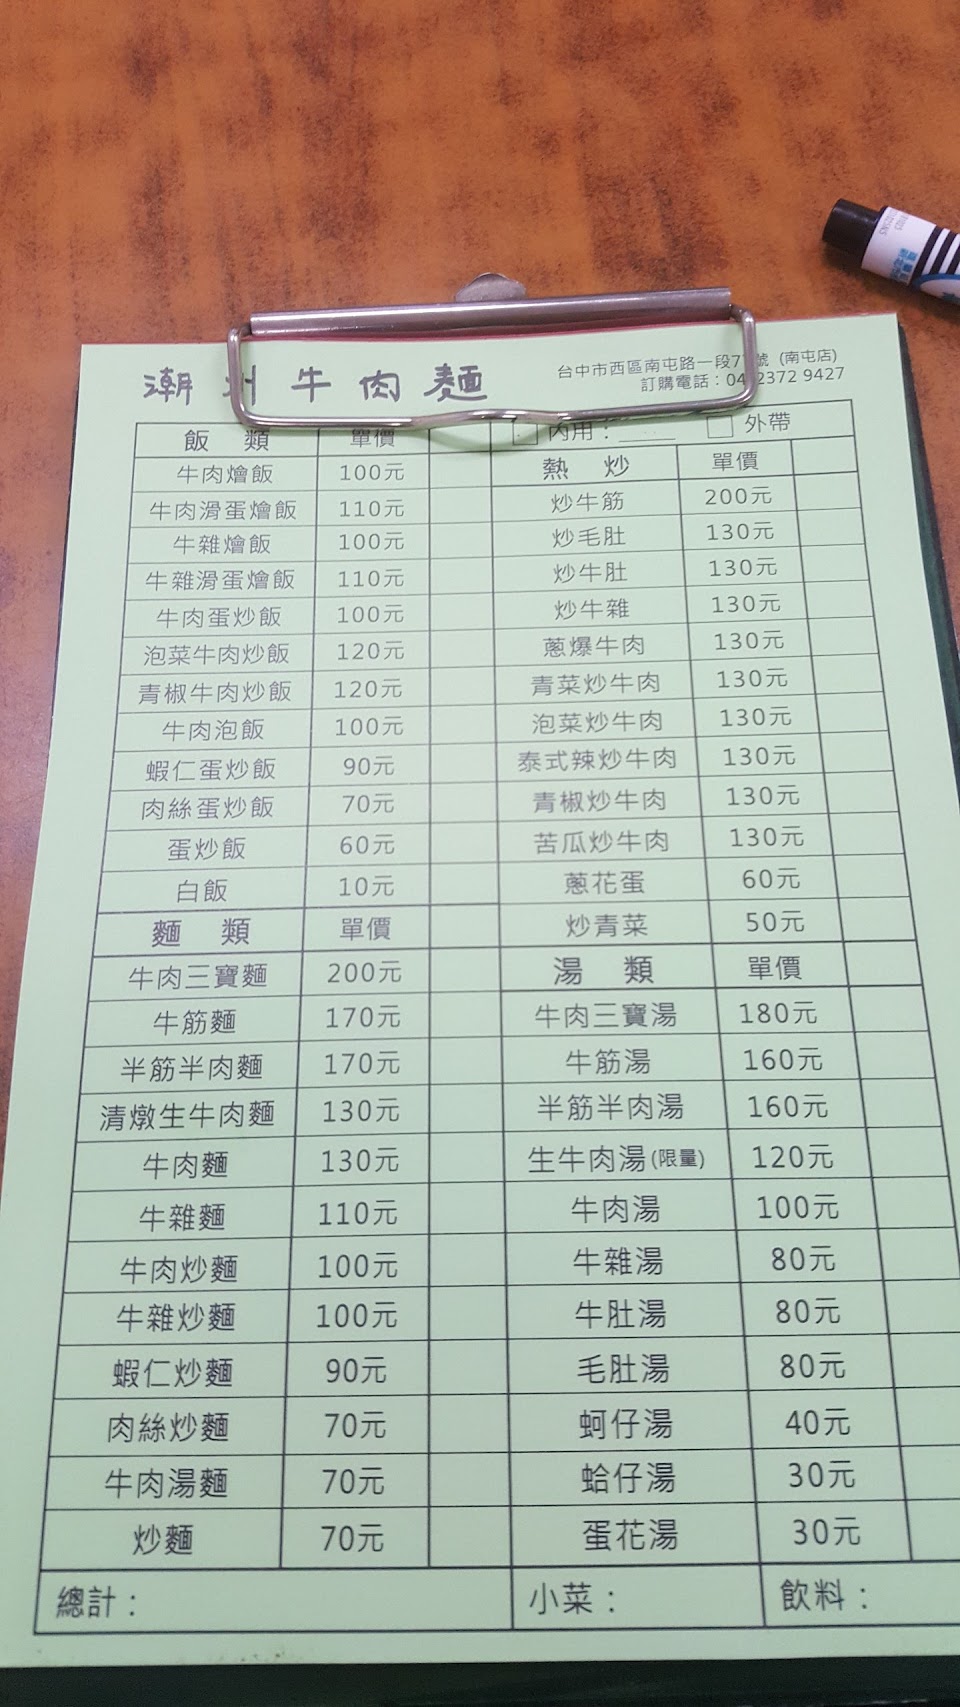 潮州牛肉麵
台中市西區南屯路一段7 號 (南屯店)
訂購電話：04 2372 9427
內用： 外帶
飯 類 單價
牛肉燴飯 100元
牛肉滑蛋燴飯 110元
牛雜燴飯 100元
牛雜滑蛋燴飯 110元
牛肉蛋炒飯 100元
泡菜牛肉炒飯 120元
青椒牛肉炒飯 120元
牛肉泡飯 100元
蝦仁蛋炒飯 90元
肉絲蛋炒飯 70元
蛋炒飯 60元
白飯 10元
麵 類 單價
牛肉三寶麵 200元
牛筋麵 170元
半筋半肉麵 170元
清燉生牛肉麵 130元
牛肉麵 130元
牛雜麵 110元
牛肉炒麵 100元
牛雜炒麵 100元
蝦仁炒麵 90元
肉絲炒麵 70元
牛肉湯麵 70元
炒麵 70元
熱 炒 單價
炒牛筋 200元
炒毛肚 130元
炒牛肚 130元
炒牛雜 130元
蔥爆牛肉 130元
青菜炒牛肉 130元
泡菜炒牛肉 130元
泰式辣炒牛肉 130元
青椒炒牛肉 130元
苦瓜炒牛肉 130元
蔥花蛋 60元
炒青菜 50元
湯 類 單價
牛肉三寶湯 180元
牛筋湯 160元
半筋半肉湯 160元
生牛肉湯(限量) 120元
牛肉湯 100元
牛雜湯 80元
牛肚湯 80元
毛肚湯 80元
蚵仔湯 40元
蛤仔湯 30元
蛋花湯 30元
總計： 小菜： 飲料：